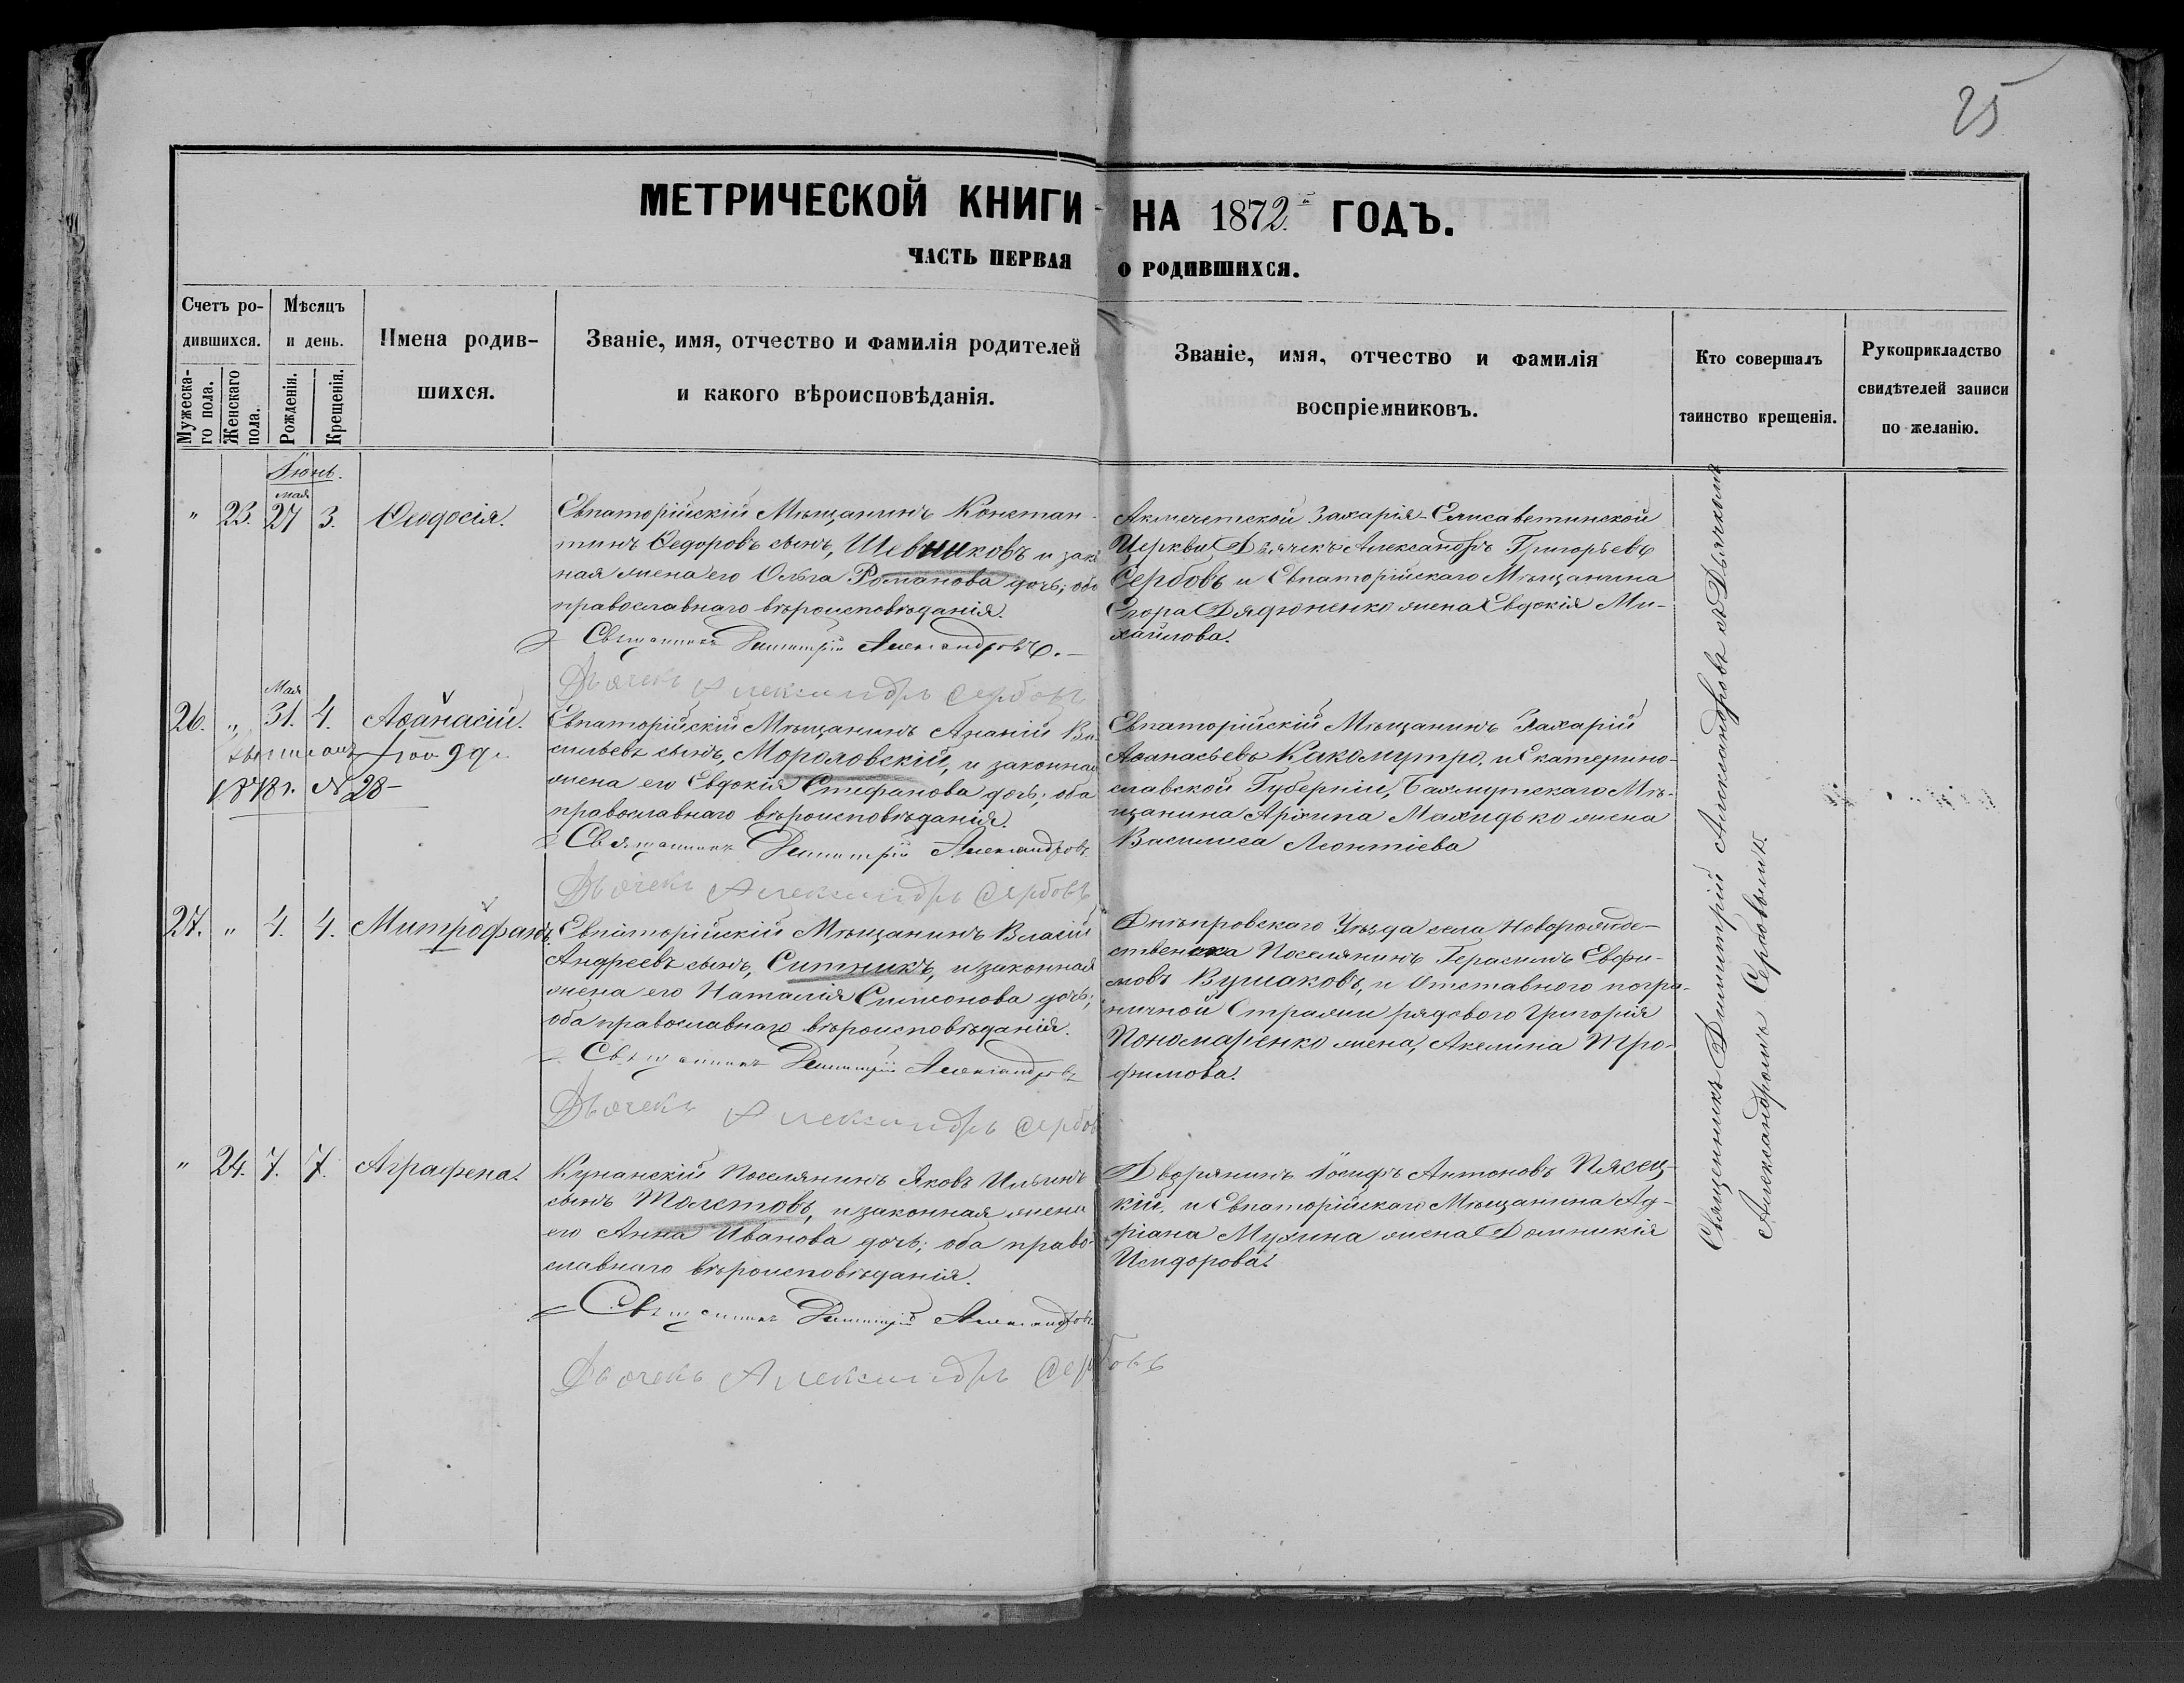 25
МЕТРИЧЕСКОЙ КНИГИ НА 1872й ГОДЪ.
ЧАСТЬ ПЕРВАЯ О РОДИВШИХСЯ.
Счетъ ро-
дившихся.
Мужеска-
го пола.
Женскаго
пола.
Мѣсяцъ
и день.
Рожденія.
Крещенія.
Имена родив-
шихся.
Званіе, имя, отчество и фамилія родителей
и какого вѣроисповѣданія.
Званіе, имя, отчество и фамилія
воспріемниковъ.
Кто совершалъ
таинство крещенія.
Рукоприкладство
свидѣтелей записи
по желанію.
Іюнь.
мая
" 23. 27 3. Ѳеодосія.
Евпаторійскій Мѣщанинъ Констан-
тинъ Ѳедоровъ сынъ, Шевчиковъ и зако
ная жена его Ольга Романова дочь; оба
православнаго вѣроисповѣданія.
Священникъ Димитрій Александровъ.
Дьячекъ Александръ Сербовъ
Акмечетской Захарія-Елисаветинской
Церкви Дьячекъ Александръ Григорьевъ
Сербовъ и Евпаторійскаго Мѣщанина
Егора Дядюненко жена Евдокія Ми-
хайлова.
Мая
26. " 31. 4. Аѳанасій.
1878 г. № 28
Евпаторійскій Мѣщанинъ Ананій Ва-
сильевъ сынъ, Морозовскій, и законная
жена его Евдокія Стефанова дочь; оба
православнаго вѣроисповѣданія.
Священникъ Димитрій Александровъ
Дьячекъ Александръ Сербовъ
Евпаторійскій Мѣщанинъ Захарій
Аѳанасьевъ Какомутро, и Екатерино-
славской Губерніи, Бахмутскаго Мѣ-
щанина Архипа Махидько жена
Василиса Леонтіева
27. " 4. 4. Митрофанъ.
Евпаторійскій Мѣщанинъ Власій
Андреевъ сынъ, Ситникъ, и законная
жена его Наталія Симеонова дочь;
оба православнаго вѣроисповѣданія.
Священникъ Димитрій Александровъ
Дьячекъ Александръ Сербовъ
Днѣпровскаго Уѣзда села Новорожде-
ственска Поселянинъ Герасимъ Евфи-
мовъ Бушаковъ, и Отставного погра-
ничной Стражи рядового Григорія
Пономаренко жена, Акелина Тро-
фимова.
" 24. 7. 7. Аграфена.
Кунанскій Поселянинъ Яковъ Ильинъ
сынъ Толстовъ, и законная жена
его Анна Иванова дочь; оба право-
славнаго вѣроисповѣданія.
Священникъ Димитрій Александровъ.
Дьячекъ Александръ Сербовъ
Дворянинъ Іосифъ Антоновъ Пясец-
кій, и Евпаторійскаго Мѣщанина Ад-
ріана Мухина жена Домникія
Исидорова.
Священникъ Димитрій Александровъ съ Дьячкомъ
Александромъ Сербовымъ.